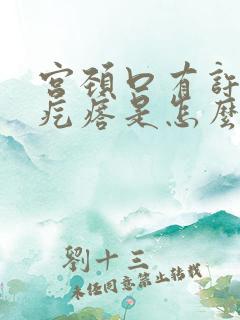 宫颈口有許
疙瘩是怎麽
劉十三
未经同意禁止转载